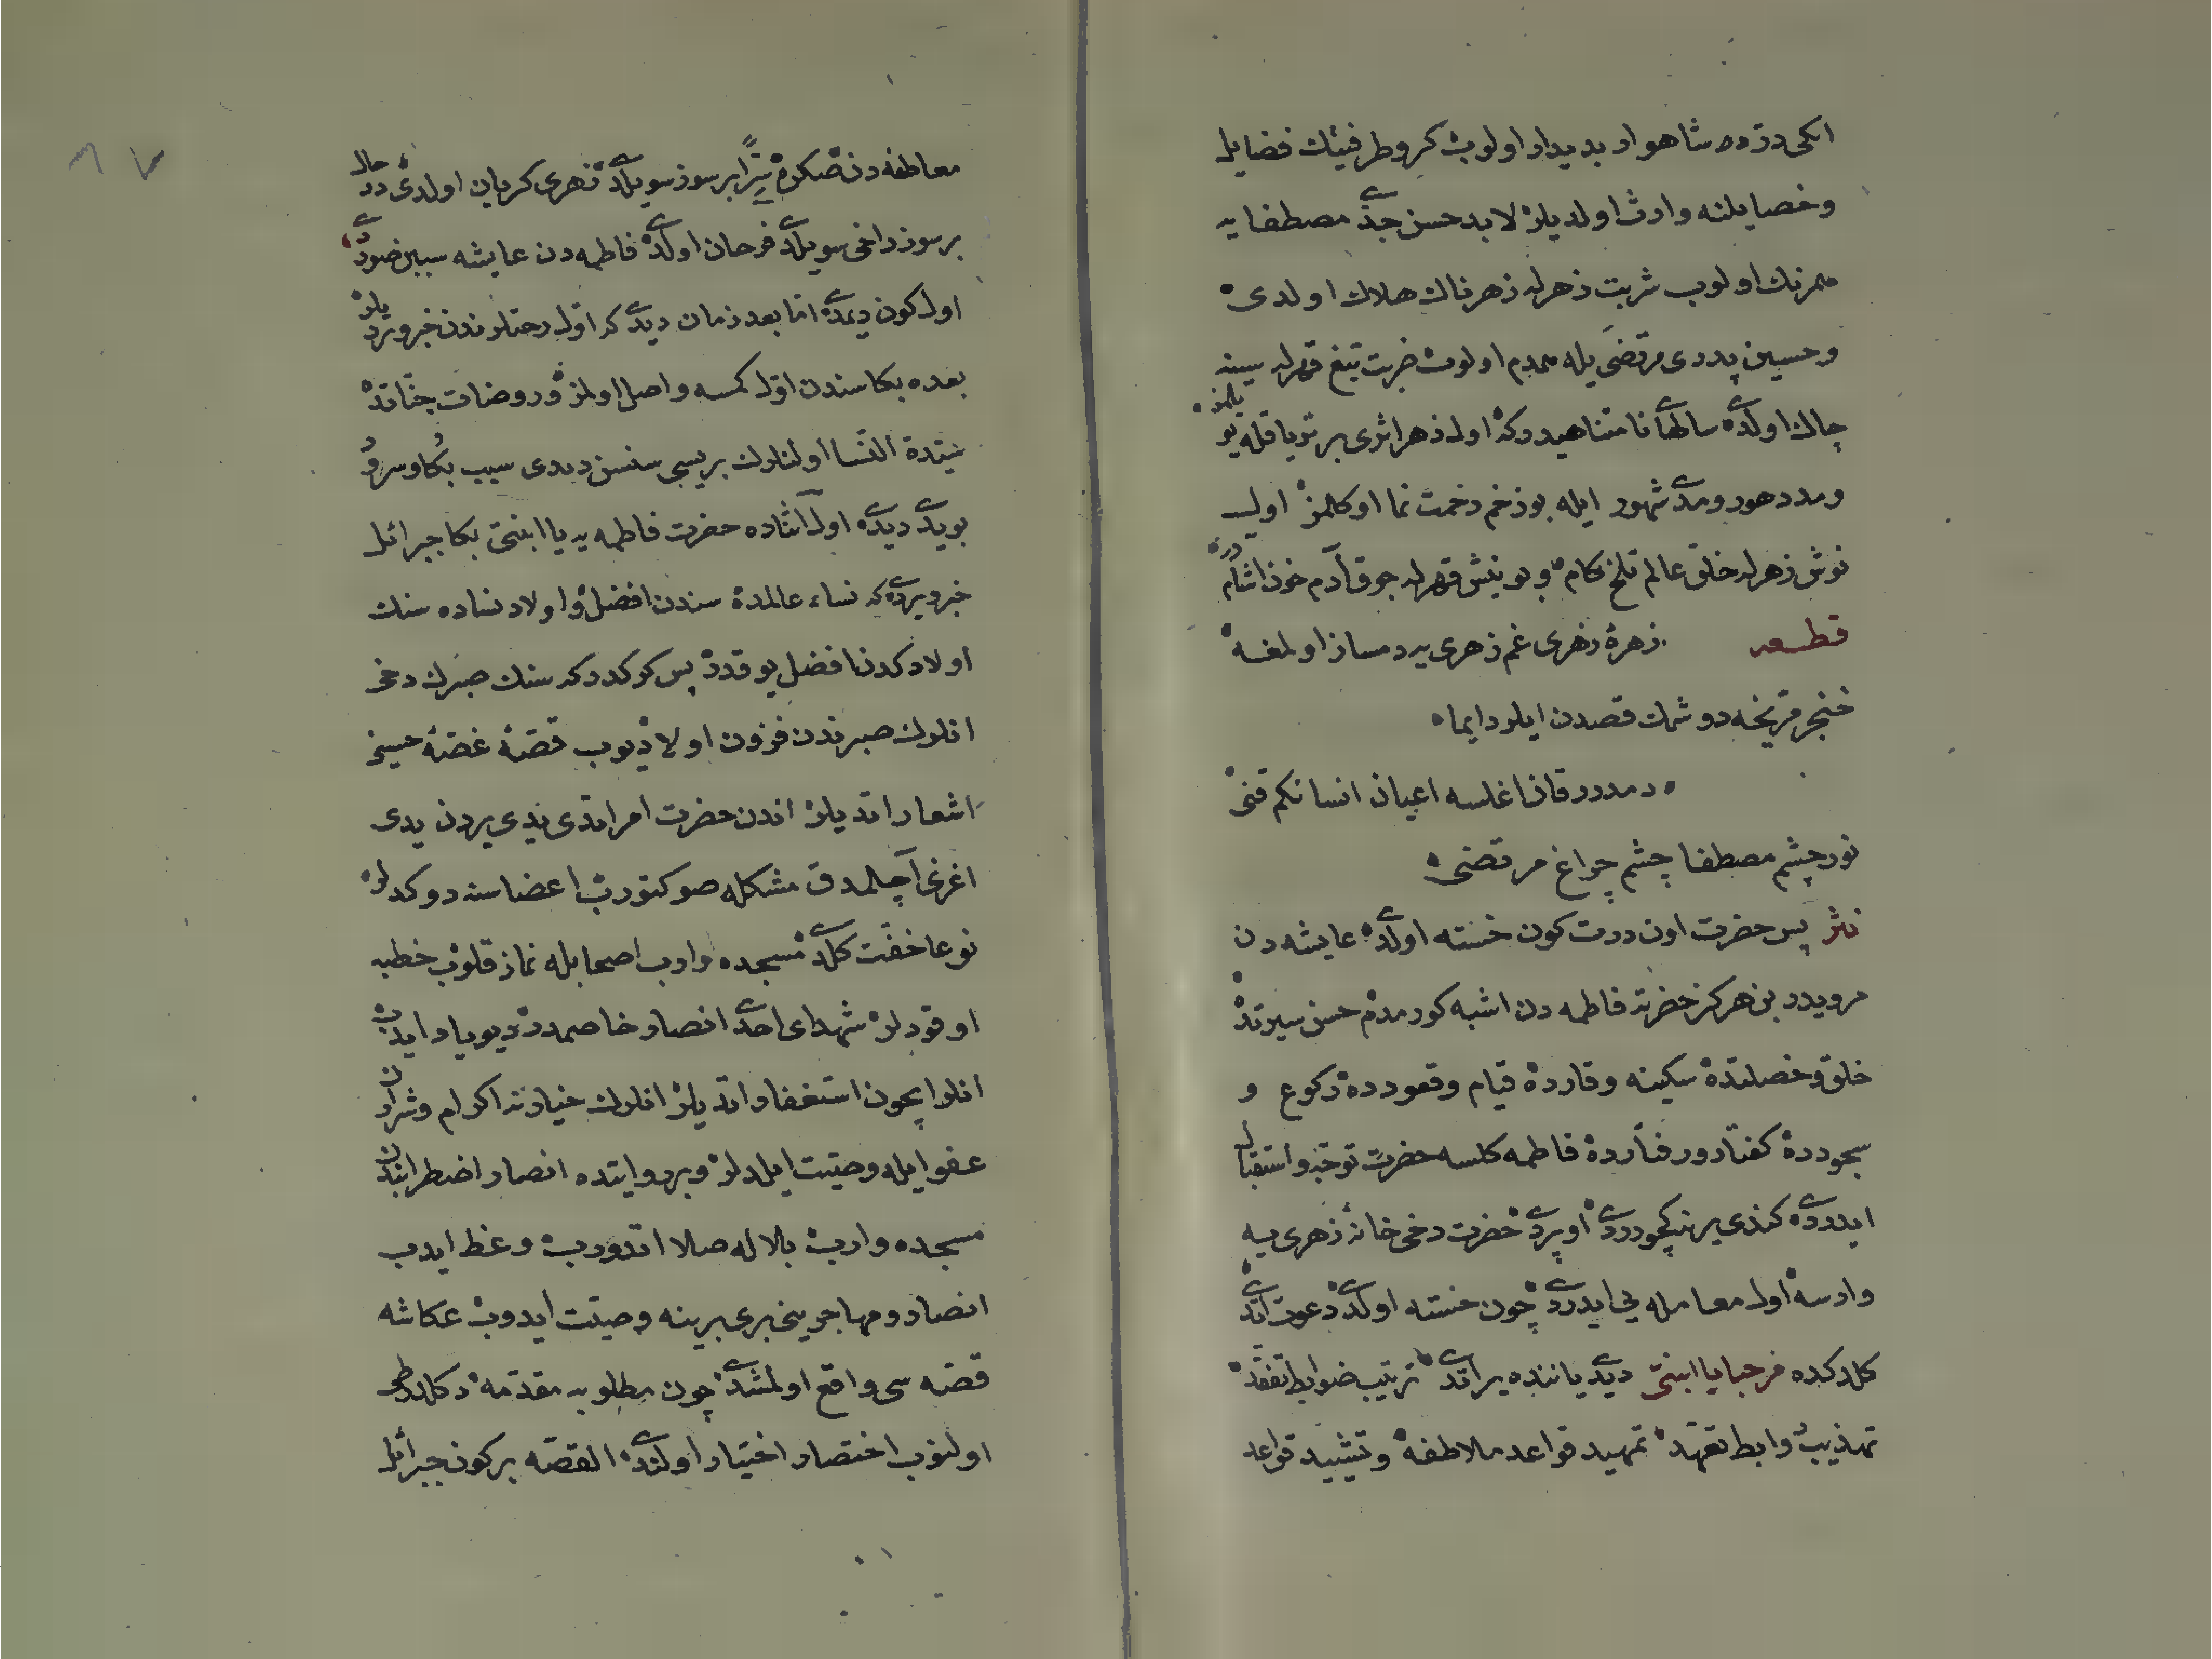 ایکی درّ ده شاهوار بدیدار اولوب کروطرفینك فضایل
وخصایلنه وارث اولدیلر لابد حسن جدّی مصطفایه
همرنك اولوب شربت زهرله زهرناك هلاك اولدی
وحسین پدری مرتضی یله همدم اولوب ضربت تیغ قهرله سینه
چاك اولدی سالهای نامتناهیدوكه اول زهر اثری بر تریاقله
ومدد دهور ومدّی شهور ایله بو زخم زحمت نما اوكلمز اول
نوش زهرله خلق عالم تلخ كام و بو نیش قهرله جوق آدم خون آشام
قطعه زهرهٔ زهری غم زهری یه دمساز اولمغه
خنجر مریخه دوشمك قصدن ایلر دایما
دمدرر قان اغلسه اعیان انسانكم قنی
نور چشم مصطفا چشم چراغ مرتضی
نثر پس حضرت اون درت كون خسته اولدی عایشه دن
مرویدر بن هركز حضرته فاطمه دن اشبه كورمدم حسن سیرتده
خلق وخصلتده سكینه وقارده قیام وقعودده ركوع و
سجودده كفتار ورفتارده فاطمه كلسه حضرت توجّه واستقبال
ایدردی كندی یرینه كچوردی اوپردی حضرت دخی خانهٔ زهری یه
وارسه اول معامله یی ایدردی چون خسته اولدی دعوت اتدی
كلدكده مرحبا یا ابنتی دیدی یاننده یر اتدی ترتیب ضوابط تفقّد
تهذیب روابط تعهّد تمهید قواعد ملاطفه وتشیید قواعد
معاطفه دن صكره سِرًّا بر سوز سویلدی زهری كریان اولدی درحال
بر سوز داخی سویلدی فرحان اولدی فاطمه دن عایشه سببن صوردی
اول كون دیمدی امّا بعد زمان دیدی كه اوّل رحتلرندن خبر ویردیلر
بعده بكا سندن اوّل كمسه واصل اولمز وروضات جنّاتده
سیّدة النّسا اولنلرك بریسی سنسن دیدی سبب بكا وسرور
بویدی دیدی اول اثناده حضرت فاطمه یه یا ابنتی بكا جبرائل
خبر ویردی كه نساء عالمده سندن افضل و اولاد نساده سنك
اولادكدن افضل یوقدر پس كركدر كه سنك صبرك دخی
انلرك صبرندن فزون اولا دیوب قصّهٔ غصّهٔ حسینی
اشعار اتدیلر اندن حضرت امر اتدی یدی یردن یدی
اغزی آچلمدق مشكله صو كتورب اعضاسنه دوكدلر
نوعا خفّت كلدی مسجده وارب اصحابله نماز قلوب خطبه
اوقودلر شهدای احدی انصار خاصمدر دیو یاد ایدب
انلر ایچون استغفار اتدیلر انلرك خیارنه اكرام وشرارن
عفو ایله وصیّت ایلدلر وبر روایتده انصار اضطرابندن
مسجده وارب بلاله صلا اتدورب وعظ ایدب
انصار ومهاجرینی بری برینه وصیّت ایدوب عكاشه
قصّه سی واقع اولمشدی چون مطلوبه مقدّمه دكلدر
اولنوب اختصار اختیار اولندی القصّه بر كون جبرائل